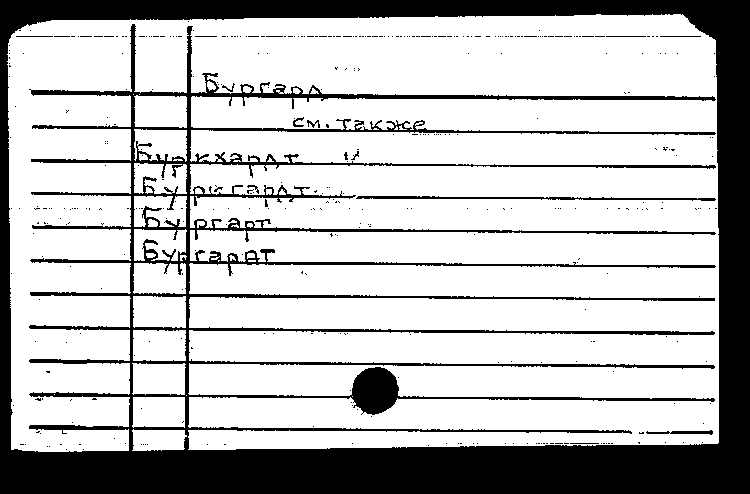 Бургард
см. также
Буркхардт
Буркгардт
Бургарт
Бургардт